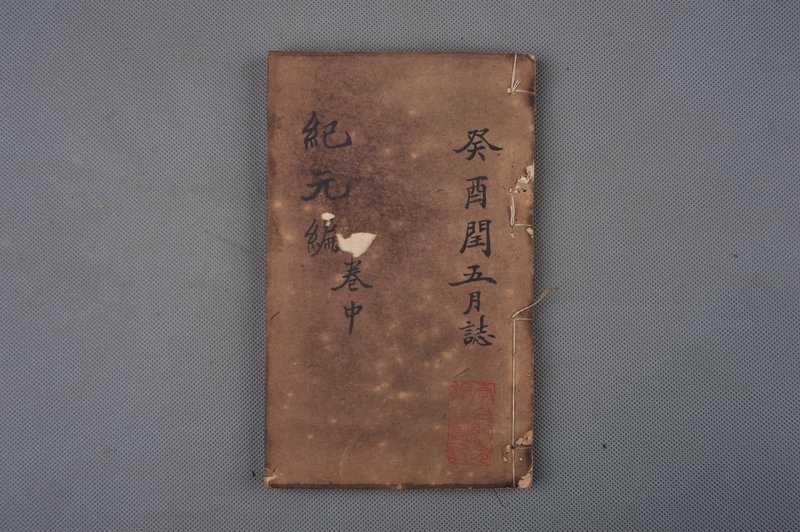 癸酉閏五月誌
紀元編
卷中